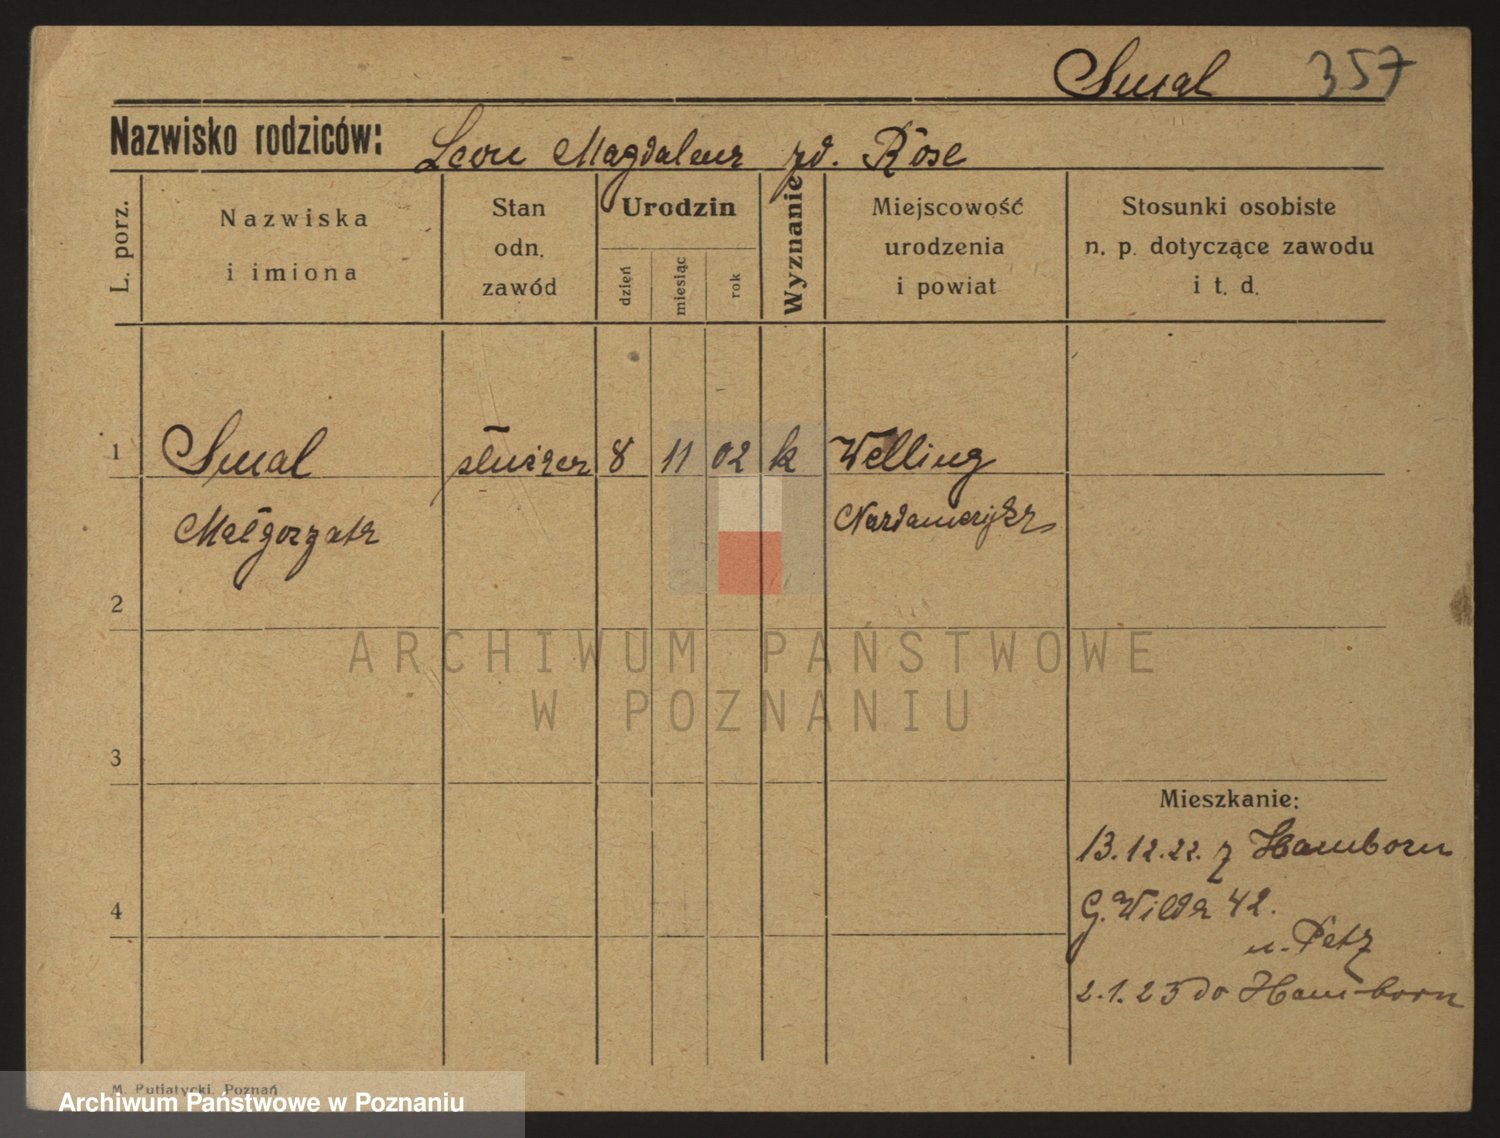 Smal 357
Nazwisko rodziców: Leon Magdalena zd. Röse
L. porz.
Nazwiska
i imiona
Stan
odn.
zawód
Urodzin
dzień
miesiąc
rok
Wyznanie
Miejscowość
urodzenia
i powiat
Stosunki osobiste
n. p. dotyczące zawodu
i t. d.
1 Smal służąca 8 11 02 k Welling
Małgorzata Nordameryka
2
ARCHIWUM PAŃSTWOWE
W POZNANIU
3
Mieszkanie:
13.12.22. z Hamborn
4 G. Wilda 42.
u. Petz
2.1.23 do Hamborn
M. Putiatycki, Poznań
Archiwum Państwowe w Poznaniu